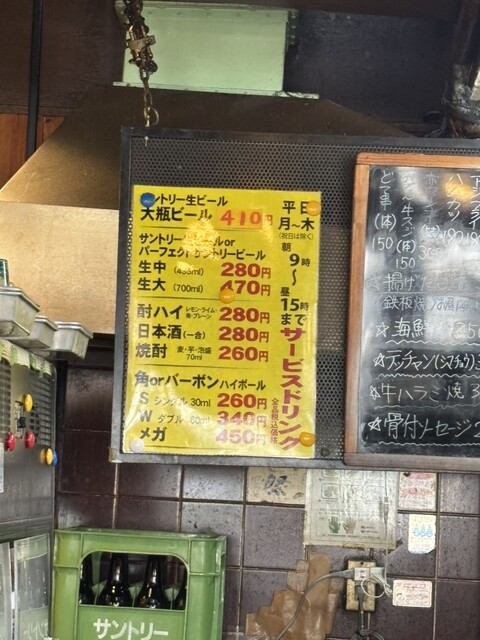 ントリー生ビール
大瓶ビール 410円
サントリー ールor
パーフェクトサントリービール
生中(435ml) 280円
生大(700ml) 470円
酎ハイ レモン・ライム・ 280円
日本酒(一合) 280円
焼酎 麦・芋・泡盛 70ml 260円
角orバーボンハイボール
S シングル 30ml 260円
W ダブル 60ml 340円
メガ 450円
平日
月~木
(祝日は除く)
朝
9時
~
昼
15時
まで
サービスドリンク
全品税込価格
どて串(1本)
150
150
鉄板焼
☆海鮮
☆テッチャン(シマチョウ)
☆牛ハラミ焼
☆骨付ソーセージ
サントリー